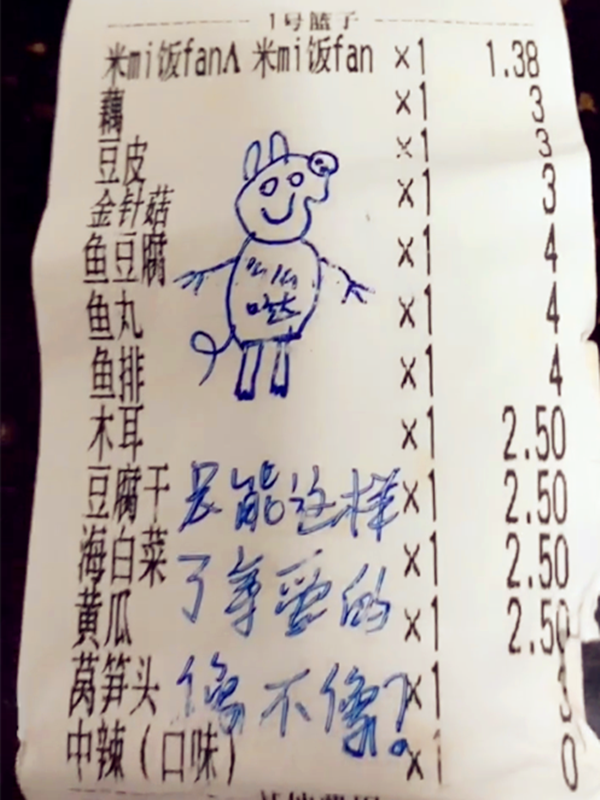 1号篮子
米mi饭fan∧ 米mi饭fan ×1 1.38
藕 ×1 3
豆皮 ×1 3
金针菇 ×1 3
鱼豆腐 ×1 4
鱼丸 ×1 4
鱼排 ×1 4
木耳 ×1 2.50
豆腐干 ×1 2.50
海白菜 ×1 2.50
黄瓜 ×1 2.50
莴笋头 ×1 3
中辣（口味） ×1 0
只能这样
了亲爱的
像不像?